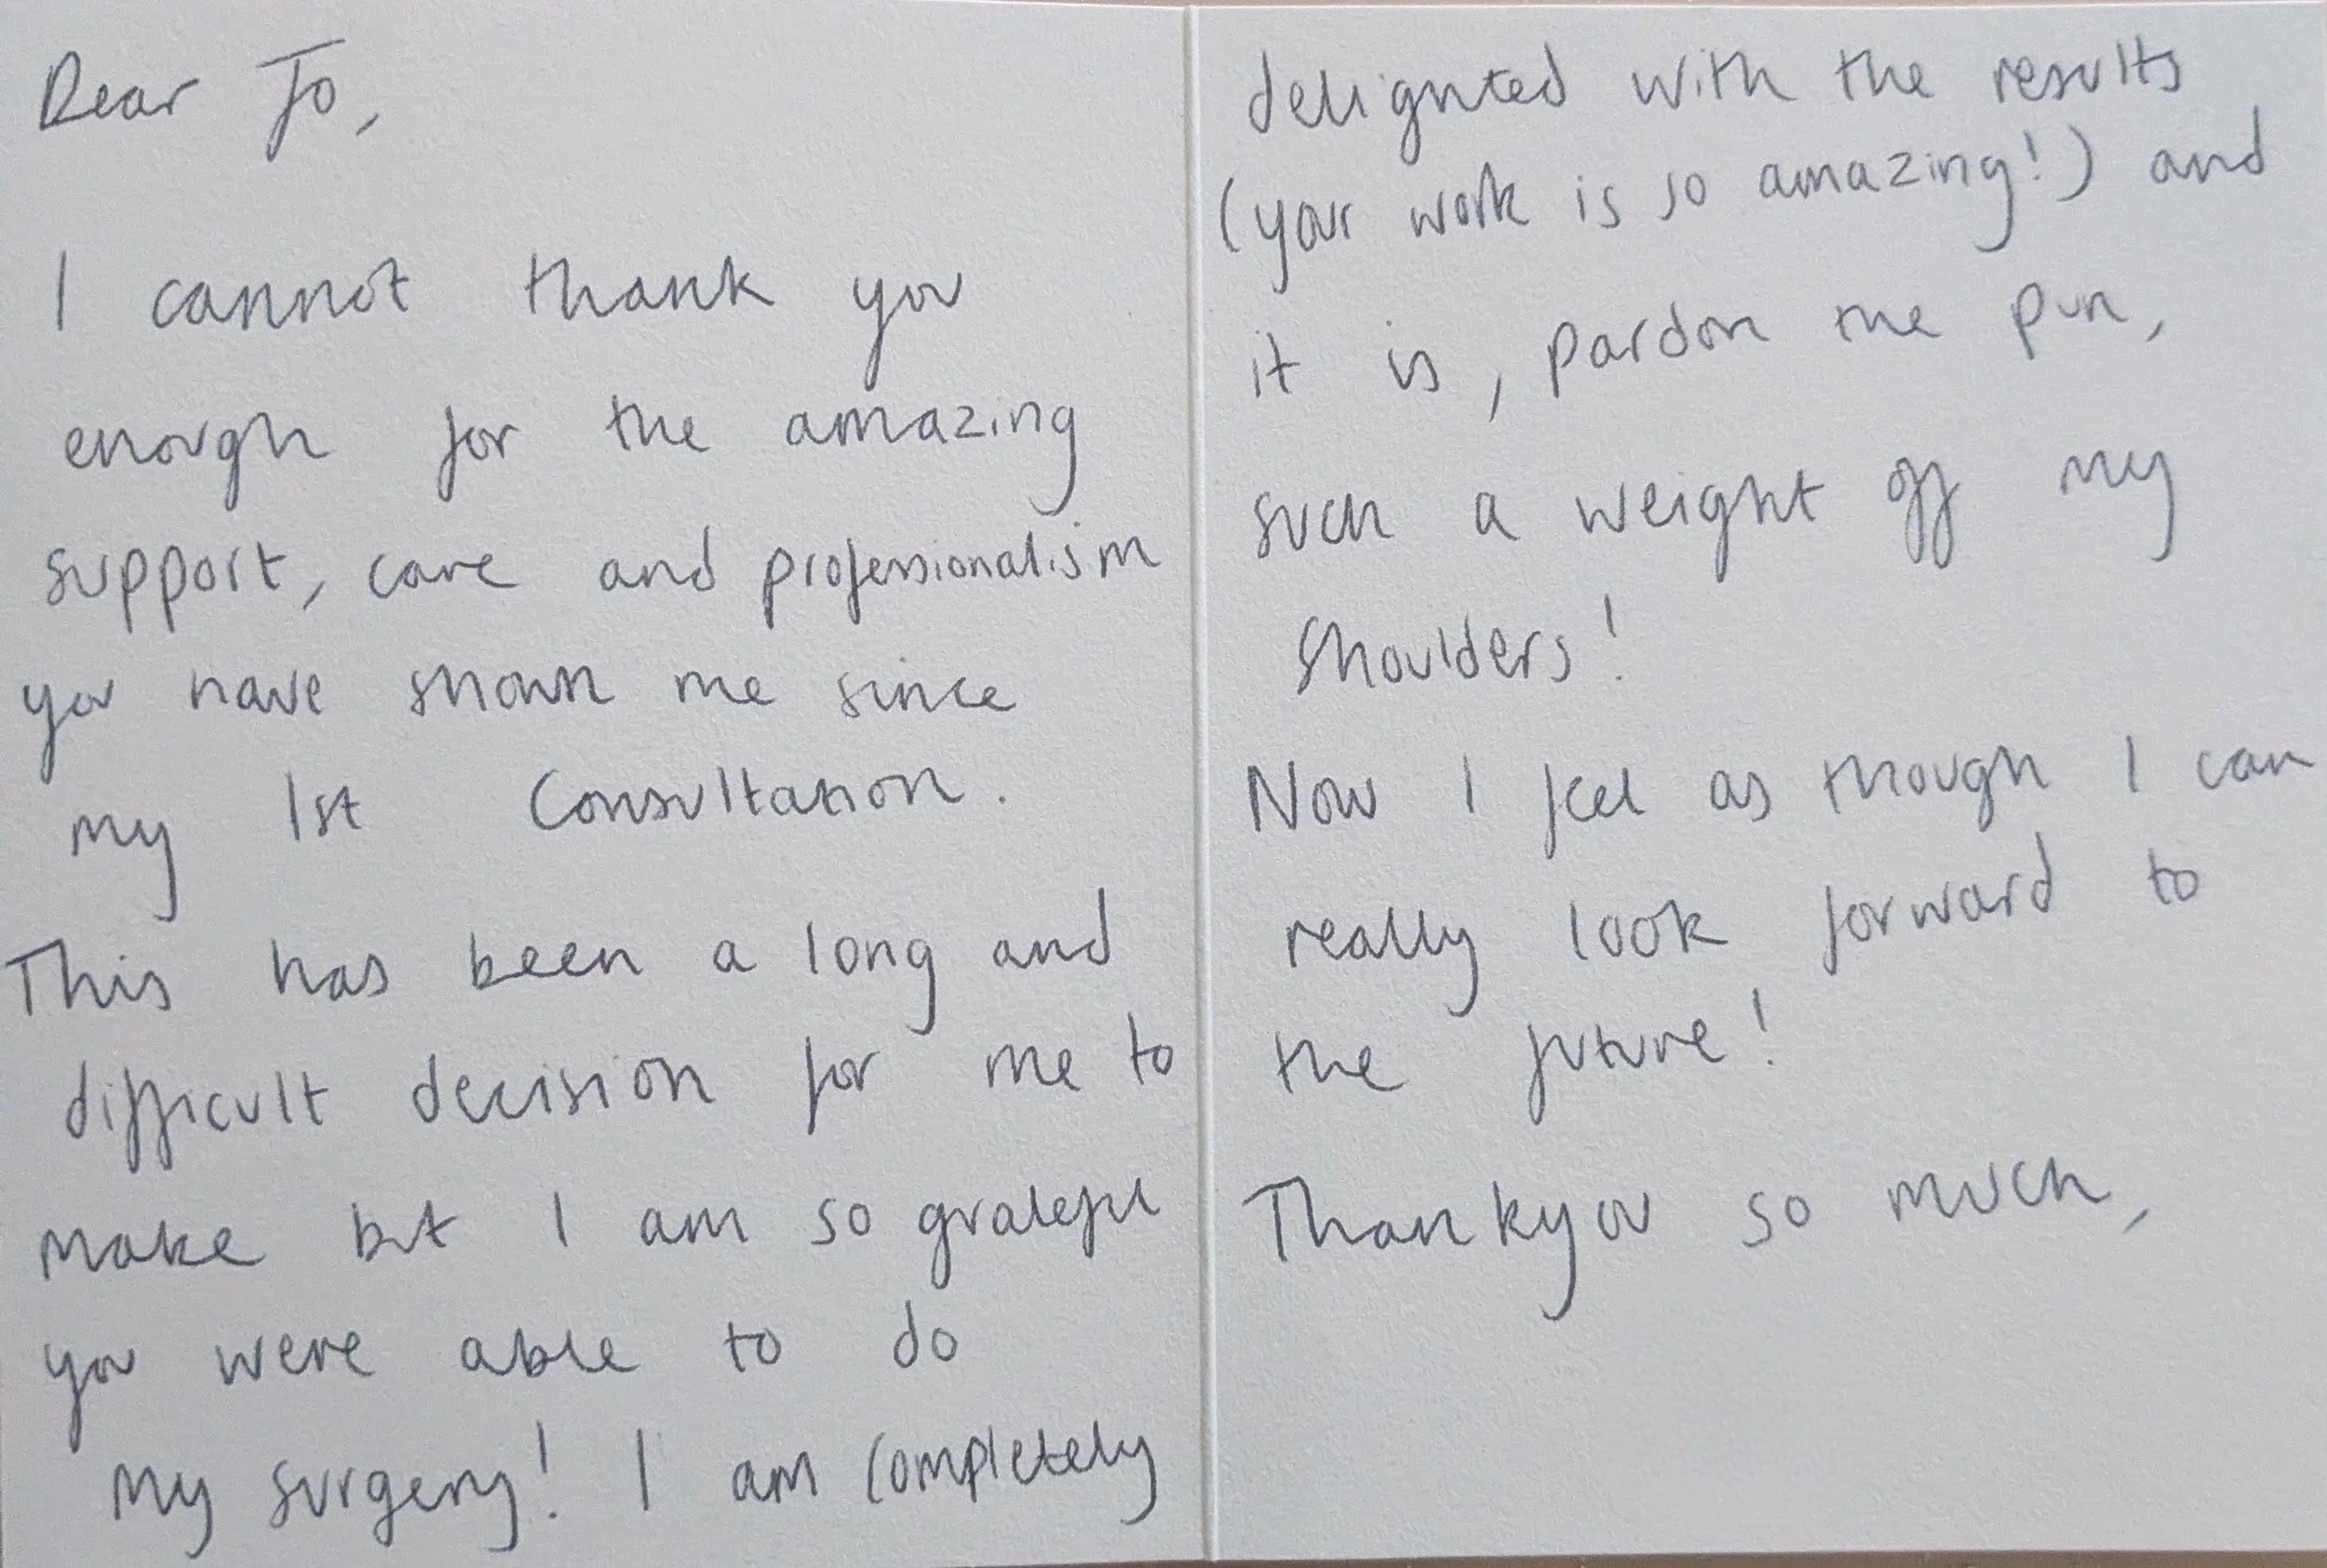 Dear Jo,
I cannot thank you
enough for the amazing
support, care and professionalism
you have shown me since
my 1st Consultation.
This has been a long and
difficult decision for me to
make but I am so grateful
you were able to do
my surgery! I am completely
delighted with the results
(your work is so amazing!) and
it is, pardon the pun,
such a weight off my
shoulders!
Now I feel as though I can
really look forward to
the future!
Thankyou so much,